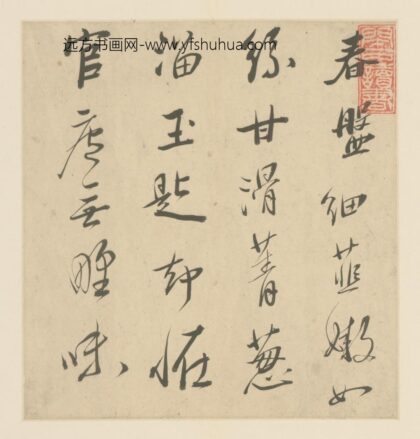 远方书画网-www.yfshuhua.com
春盤細韭嫩如
絲甘滑菁葱
溜玉匙却恠
官庖無味